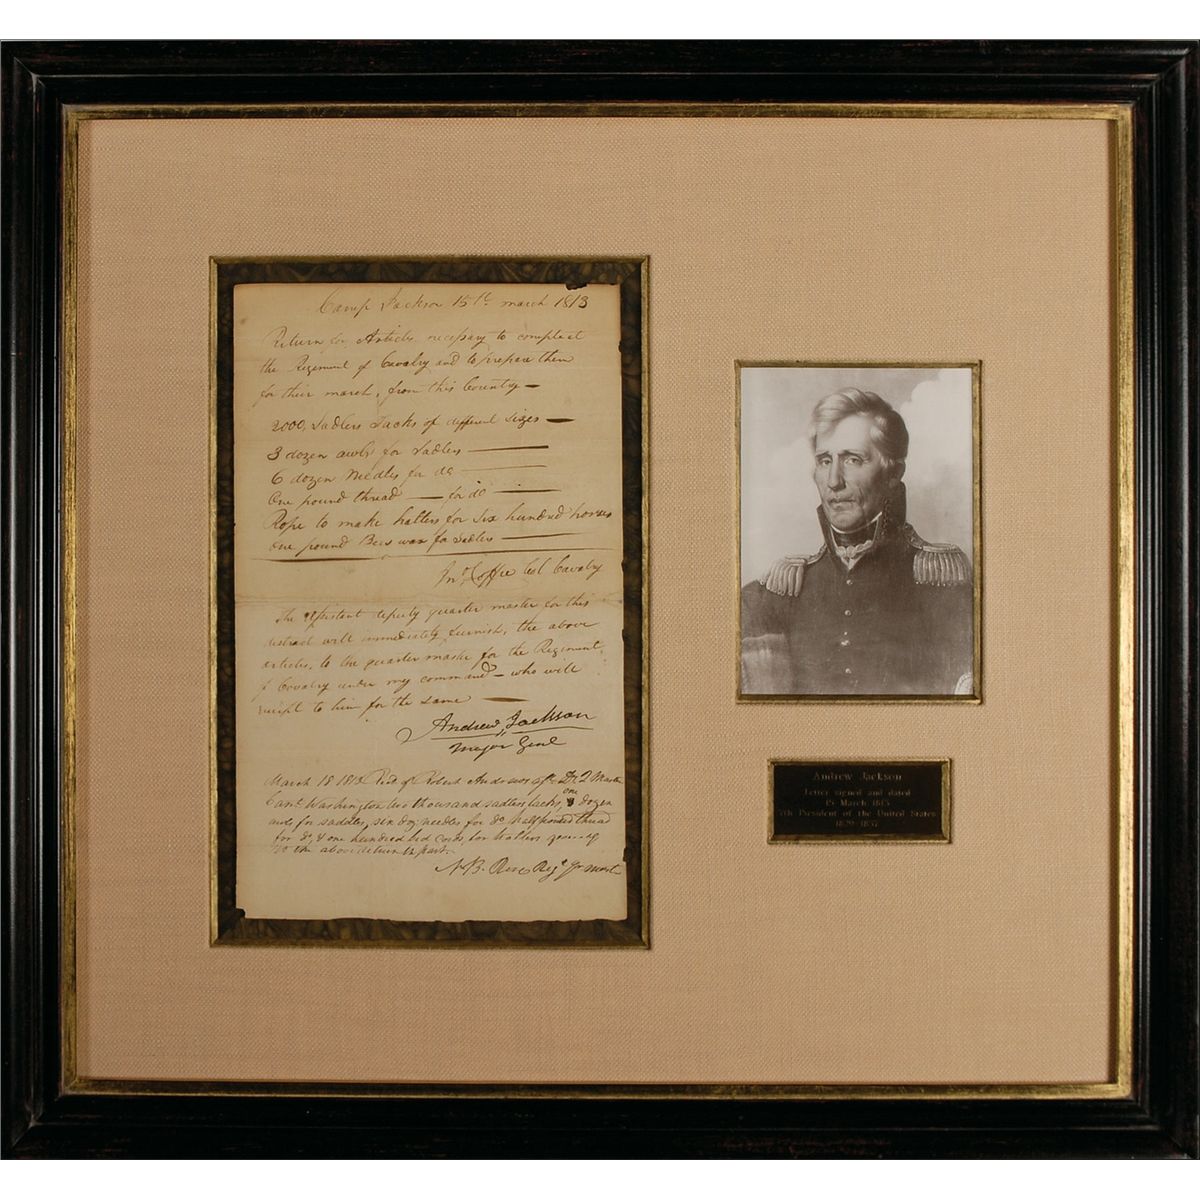 Camp Jackson 15th march 1813
Return for Articles necessary to compleat
the Regiment of Cavalry and to prepare them
for their march, from this County —
2000, Sadlers Tacks of different sizes —
3 dozen awls for Sadlers —
6 dozen Needles for do —
One pound thread — for do —
Rope to make halters for six hundred horses
One pound Bees wax for Sadlers —
Jno. Coffee Col Cavalry
The assistent deputy quarter master for this
district will immediately furnish, the above
articles, to the quarter master for the Regiment,
of Cavalry under my command — who will
receipt to him for the same —
Andrew Jackson
Major Genl
March 18 1813 Recd of Robert Andrews Dr Q Master
Cant. Washington two thousand sadlers tacks, one dozen
awls for saddles, six doz needles for do half pound thread
for do, & one hundred bed cords for halters
to the above return in part.
N B. Rose Regt Qr mast
Andrew Jackson
Letter signed and dated
15 March 1813
7th President of the United States
1829-1837